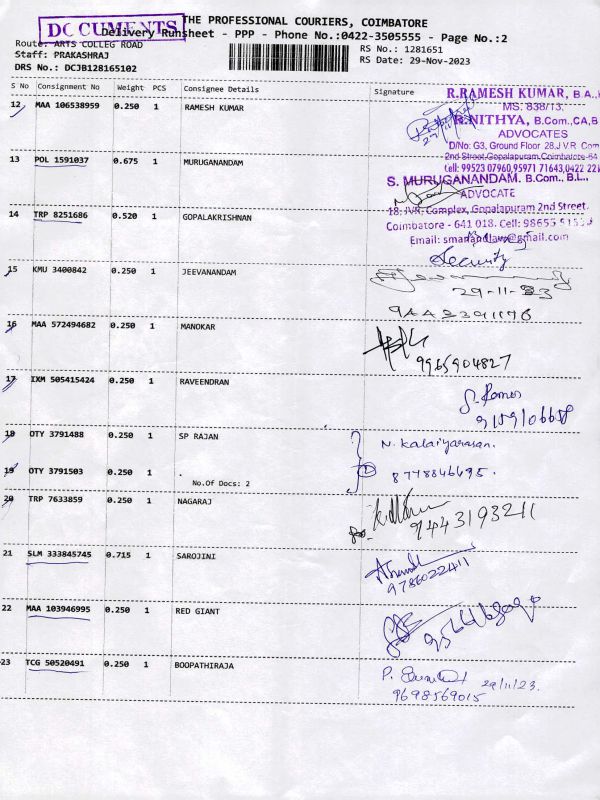 DOCUMENTS
THE PROFESSIONAL COURIERS, COIMBATORE
Delivery Runsheet - PPP - Phone No.:0422-3505555 - Page No.:2
Route: ARTS COLLEG ROAD
Staff: PRAKASHRAJ
DRS No.: DCJB128165102
RS No.: 1281651
RS Date: 29-Nov-2023
S No Consignment No Weight PCS Consignee Details Signature
R.RAMESH KUMAR, B.A.,
MS. 838/13.
R.NITHYA, B.Com.,CA,B
ADVOCATES
D/No: G3, Ground Floor 28,J.V.R. Com
2nd Street,Gopalapuram,Coimbatore-64
Cell: 99523 07960,95971 71643,0422 22
12 MAA 106538959 0.250 1 RAMESH KUMAR
13 POL 1591037 0.675 1 MURUGANANDAM
S. MURUGANANDAM. B.Com., B.L.,
ADVOCATE
18, JVR, Complex, Gopalapuram 2nd Street,
Coimbatore - 641 018. Cell: 98655
Email: smanandlaw@gmail.com
14 TRP 8251686 0.520 1 GOPALAKRISHNAN
Security
15 KMU 3400842 0.250 1 JEEVANANDAM
29-11-23
16 MAA 572494682 0.250 1 MANOKAR
9965904827
17 IXM 505415424 0.250 1 RAVEENDRAN
18 OTY 3791488 0.250 1 SP RAJAN
N. Kalaiyarasan.
19 OTY 3791503 0.250 1 .
No.Of Docs: 2
8778846695.
20 TRP 7633859 0.250 1 NAGARAJ
9443193211
21 SLM 333845745 0.715 1 SAROJINI
9786022411
22 MAA 103946995 0.250 1 RED GIANT
23 TCG 50520491 0.250 1 BOOPATHIRAJA
29/11/23.
9698569015